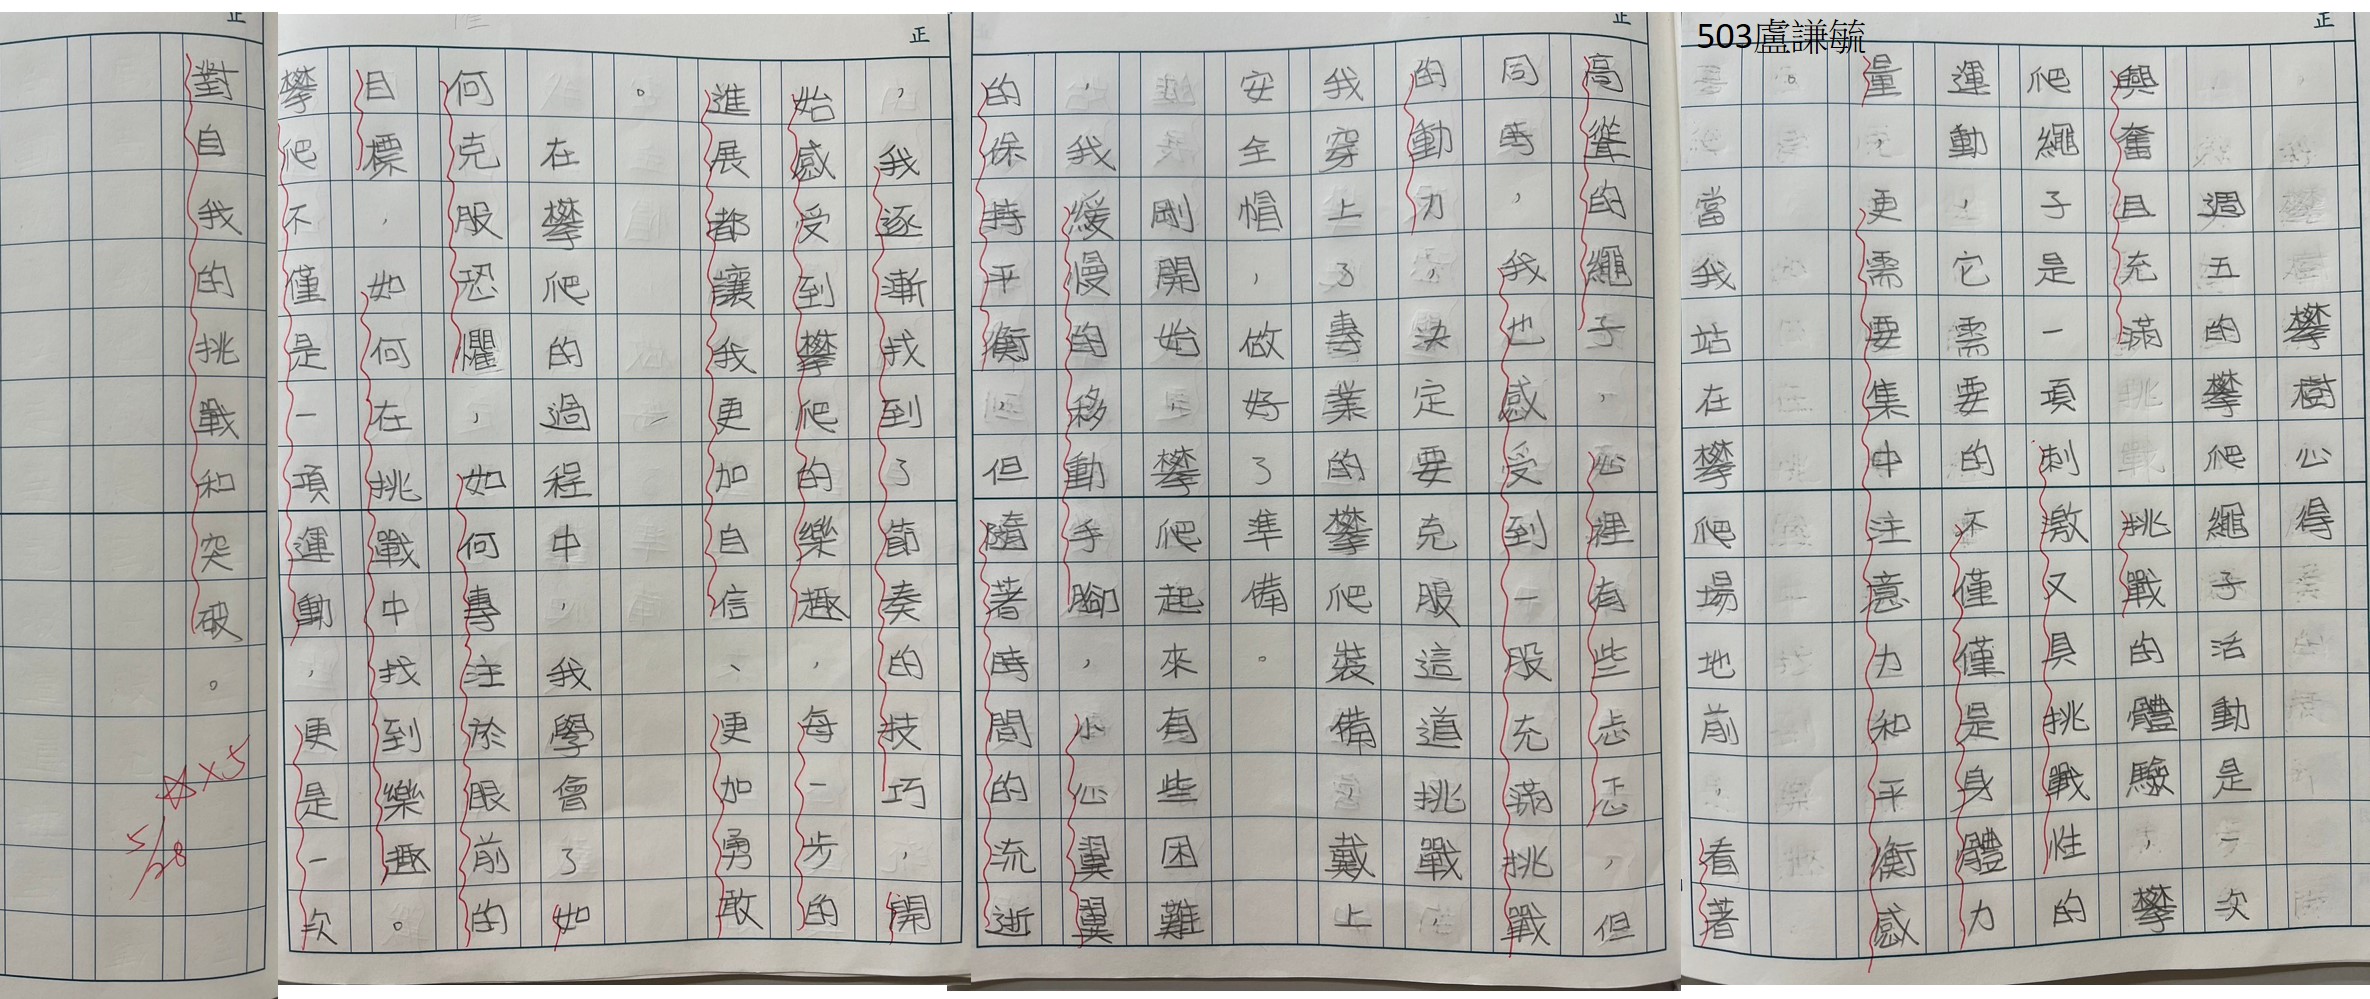 503盧謙毓
正
攀樹心得
週五的攀爬繩子活動是次
興奮且充滿挑戰的體驗，攀
爬繩子是一項刺激又具挑戰性的
運動，它需要的不僅僅是身體力
量，更需要集中注意力和平衡感
。
當我站在攀爬場地前，看著
正
高聳的繩子，心裡有些忐忑，但
同時，我也感受到一股充滿挑戰
的動力，決定要克服這道挑戰，
我穿上了專業的攀爬裝備，戴上
安全帽，做好了準備。
剛開始攀爬起來有些困難
，我緩慢的移動手腳，小心翼翼
的保持平衡，但隨著時間的流逝
正
，我逐漸找到了節奏的技巧，開
始感受到攀爬的樂趣，每一步的
進展都讓我更加自信、更加勇敢
。
在攀爬的過程中，我學會了如
何克服恐懼，如何專注於眼前的
目標，如何在挑戰中找到樂趣。
攀爬不僅是一項運動，更是一次
正
對自我的挑戰和突破。
☆×5
5/28